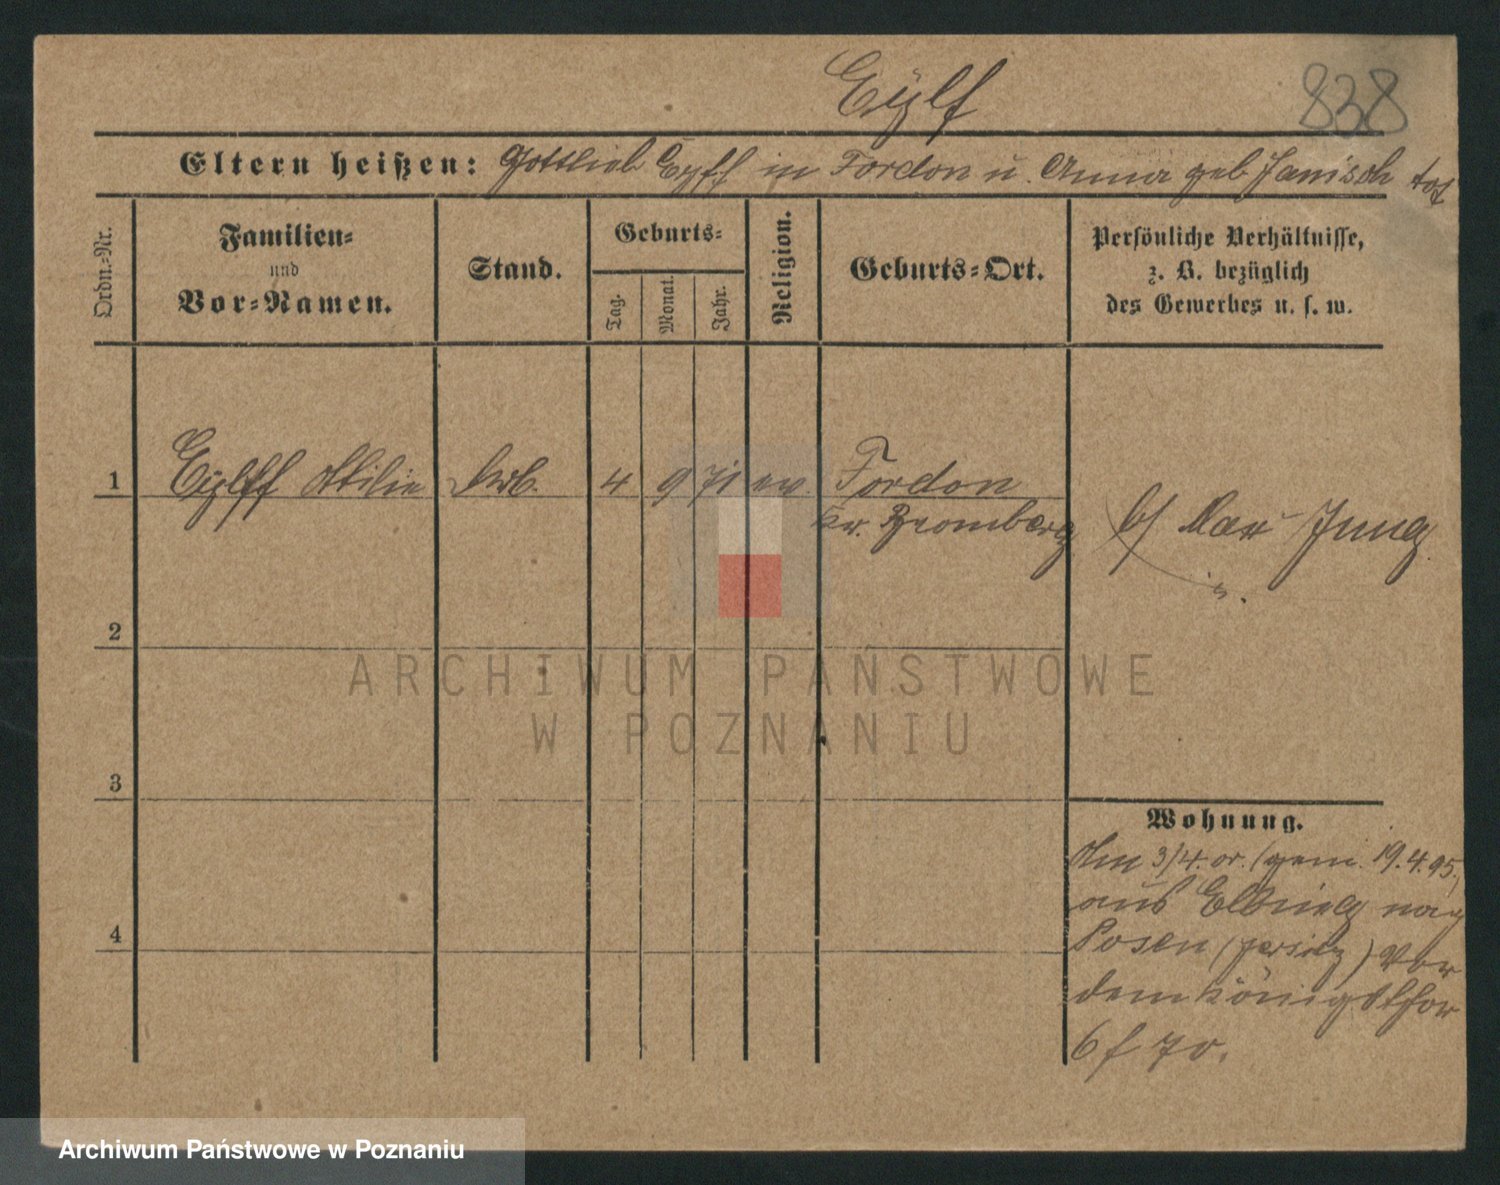 Eÿlf
838
Eltern heißen: Gottlieb Eylff in Fordon u. Anna geb Janisch tot
Ordn.-Nr.
Familien-
und
Vor-Namen.
Stand.
Geburts-
Tag.
Monat.
Jahr.
Religion.
Geburts-Ort.
Persönliche Verhältnisse,
z. B. bezüglich
des Gewerbes u. s. w.
1 Eÿlff Ottilie 4 9 71 ev. Fordon
Kr. Bromberg
b/ Max Jung
2
3
4
Wohnung.
Am 3/4. er. (gem. 19.4.95.)
aus Elbing nach
Posen (Jersitz) Vor
dem Königsthor
6 f 70.
ARCHIWUM PAŃSTWOWE
W POZNANIU
Archiwum Państwowe w Poznaniu